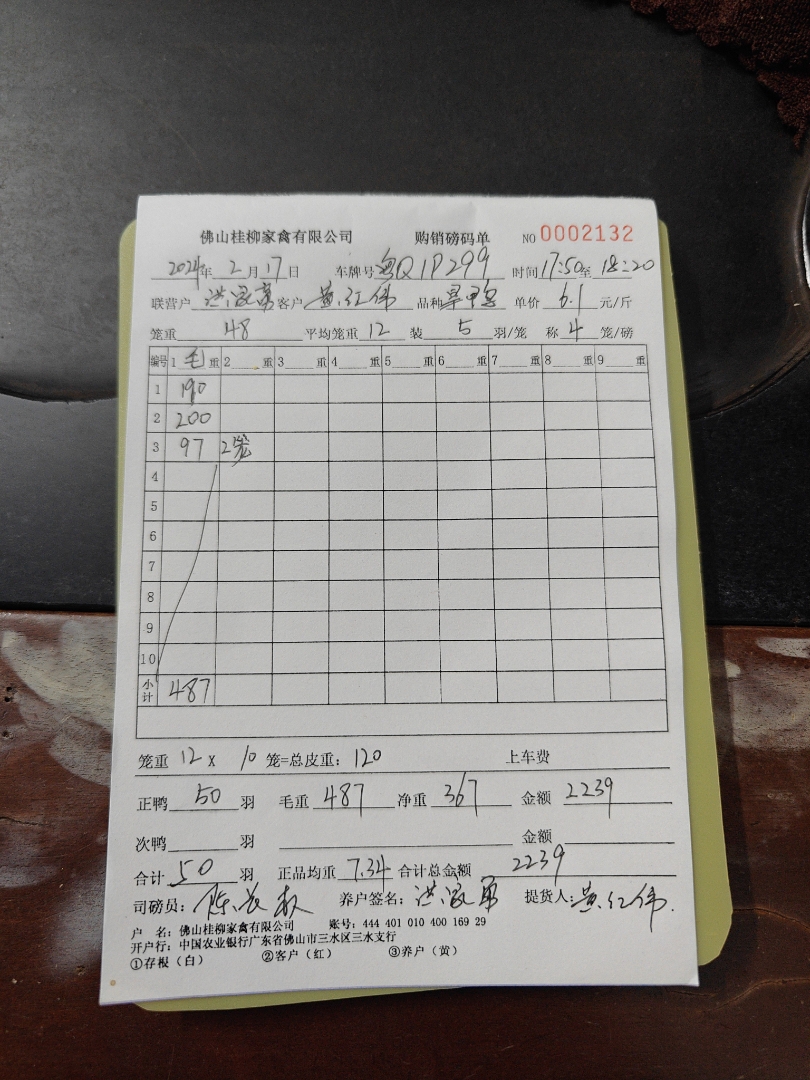 佛山桂柳家禽有限公司 购销磅码单 NO 0002132
2024年 2 月 17 日 车牌号 粤Q1P299 时间 17:50至 18:20
联营户 洪家勇 客户 黄红伟 品种 单价 6.1 元/斤
笼重 48 平均笼重 12 装 5 羽/笼 称 4 笼/磅
编号 1 毛 重 2 重 3 重 4 重 5 重 6 重 7 重 8 重 9 重
1 190
2 200
3 97 2笼
4
5
6
7
8
9
10
小计 487
笼重 12 x 10 笼=总皮重: 120 上车费
正鸭 50 羽 毛重 487 净重 367 金额 2239
次鸭 羽 金额
合计 50 羽 正品均重 7.34 合计总金额 2239
司磅员: 陈 养户签名: 洪家勇 提货人: 黄红伟.
户 名: 佛山桂柳家禽有限公司 账号: 444 401 010 400 169 29
开户行: 中国农业银行广东省佛山市三水区三水支行
①存根（白） ②客户（红） ③养户（黄）